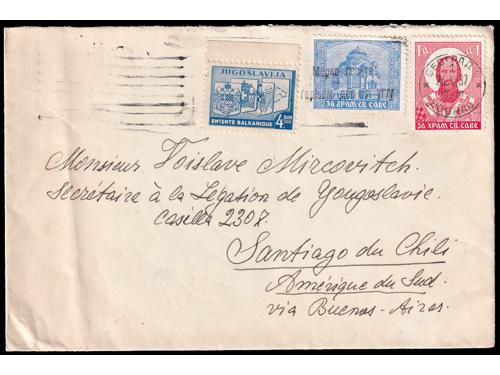 JUGOSLAVIJA
ENTENTE BALKANIQUE
4 DIN
ЗА ХРАМ СВ. САВЕ
1Д 1Д
ЗА ХРАМ СВ. САВЕ
Monsieur Voislave Mircovitch.
Secrétaire à la Légation de Yougoslavie.
Casilla 2307.
Santiago du Chili
Amérique du Sud.
via Buenos-Aires.